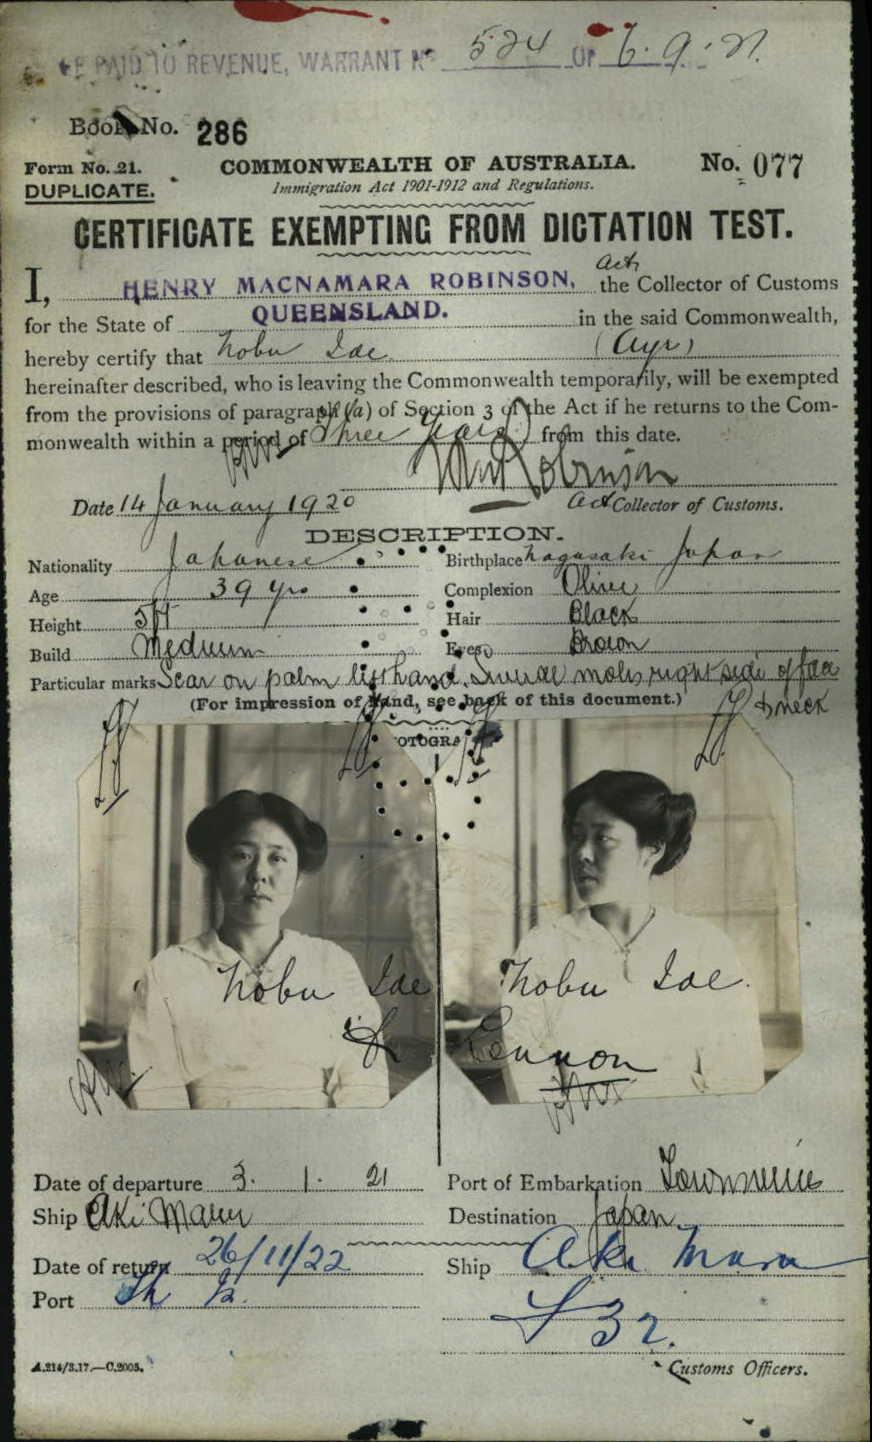 PAID TO REVENUE, WARRANT No 524 OF 6.9.21
Book No. 286
Form No. 21. COMMONWEALTH OF AUSTRALIA. No. 077
DUPLICATE. Immigration Act 1901-1912 and Regulations.
CERTIFICATE EXEMPTING FROM DICTATION TEST.
I, HENRY MACNAMARA ROBINSON, Actg the Collector of Customs
for the State of QUEENSLAND. in the said Commonwealth,
hereby certify that Nobu Ide (Ayr)
hereinafter described, who is leaving the Commonwealth temporarily, will be exempted
from the provisions of paragraph (a) of Section 3 of the Act if he returns to the Com-
monwealth within a period of Three Years from this date.
Robinson
Date 14 January 1920 Act Collector of Customs.
DESCRIPTION.
Nationality Japanese Birthplace Nagasaki Japan
Age 39 yrs Complexion Olive
Height 5ft Hair Black
Build Medium Eyes Brown
Particular marks Scar on palm left hand. Several moles right side of face
& neck
(For impression of hand, see back of this document.)
PHOTOGRA
Nobu Ide Nobu Ide.
Lennon
Date of departure 3. 1. 21 Port of Embarkation Townsville
Ship Aki Maru Destination Japan
Date of return 26/11/22 Ship Aki Maru
Port Th Is.
32.
A.214/3.17.—C.2003. Customs Officers.